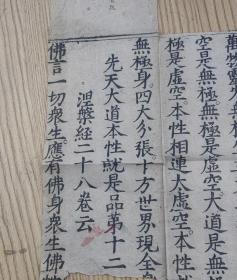 空是無極。無極是大道。是無
極是虛空。本性相連太虛空。本性
無極身。四大分張。十方世界現全身
先天大道本性就是品第十二
涅槃經二十八卷云
佛言一切衆生應有佛身衆生佛